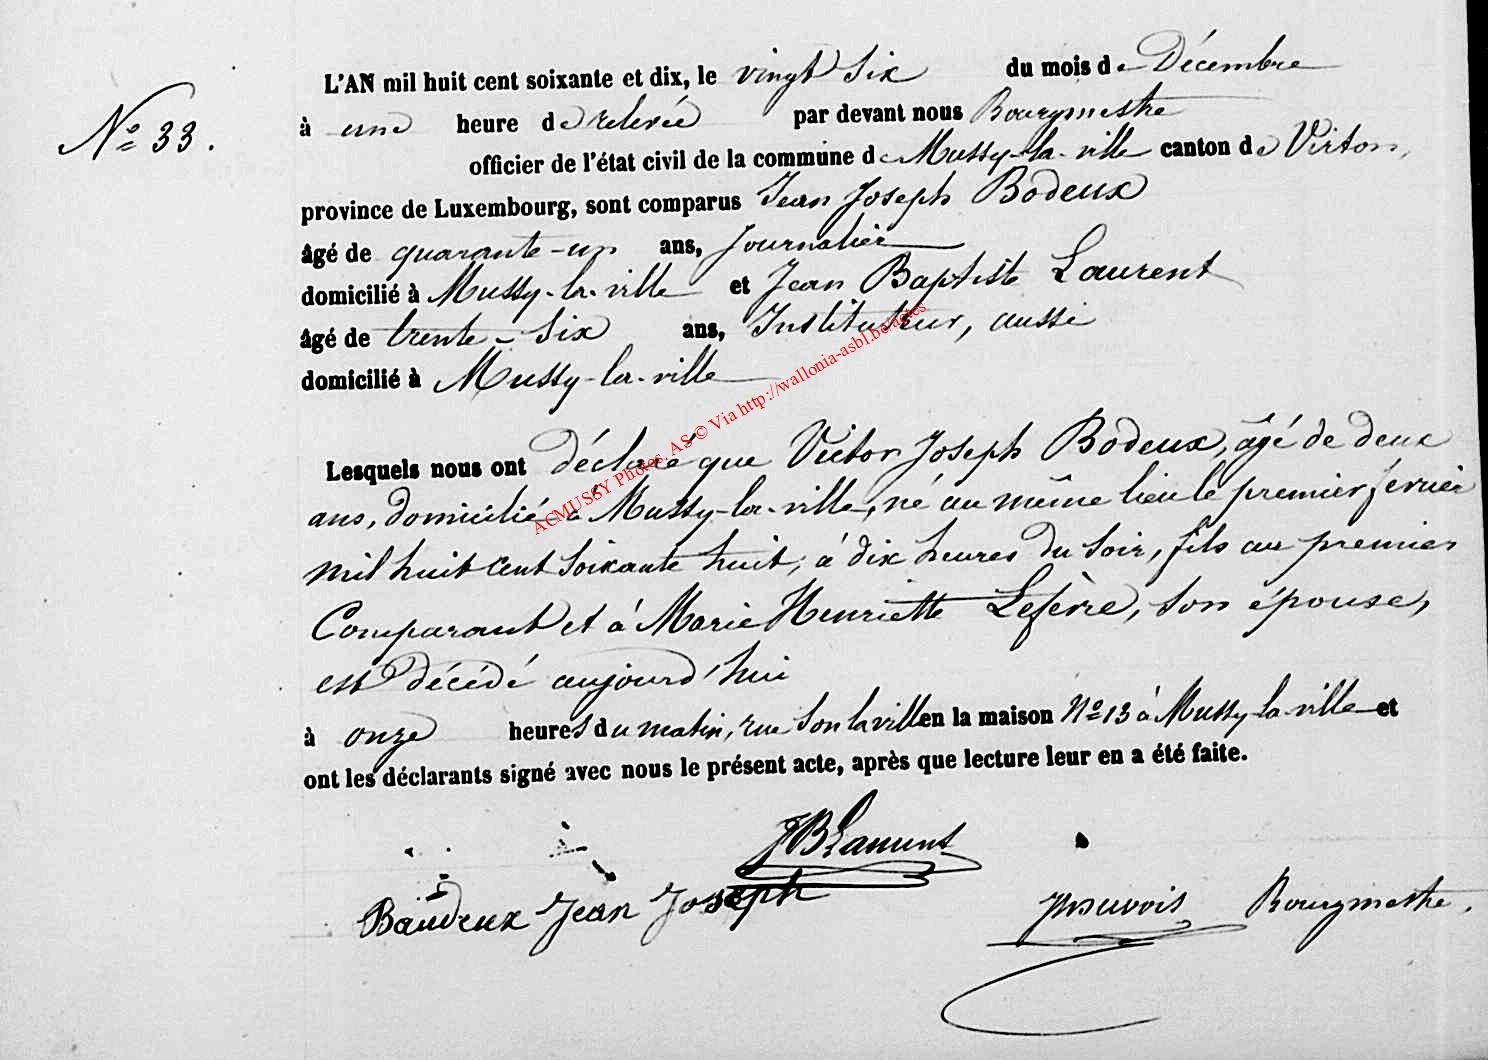 L'AN mil huit cent soixante et dix, le vingt six du mois de Décembre
N° 33. à une heure de relevée par devant nous Bourgmestre
officier de l'état civil de la commune de Mussy-la-ville canton de Virton,
province de Luxembourg, sont comparus Jean Joseph Bodeux
âgé de quarante-un ans, journalier
domicilié à Mussy-la-ville et Jean Baptiste Laurent
âgé de trente-six ans, Instituteur, aussi
domicilié à Mussy-la-ville
ACMUSSY Photos. AS © Via http://wallonia-asbl.be/actes
Lesquels nous ont déclaré que Victor Joseph Bodeux, âgé de deux
ans, domicilié à Mussy-la-ville, né au même lieu le premier fevrier
mil huit cent soixante huit, à dix heures du soir, fils au premier
Comparant et à Marie Henriette Lefèvre, son épouse,
est décédé aujourd'hui
à onze heures du matin, rue Son la ville en la maison N° 13 à Mussy-la-ville et
ont les déclarants signé avec nous le présent acte, après que lecture leur en a été faite.
JB Laurent
Baudeux Jean Joseph Bourgmestre.